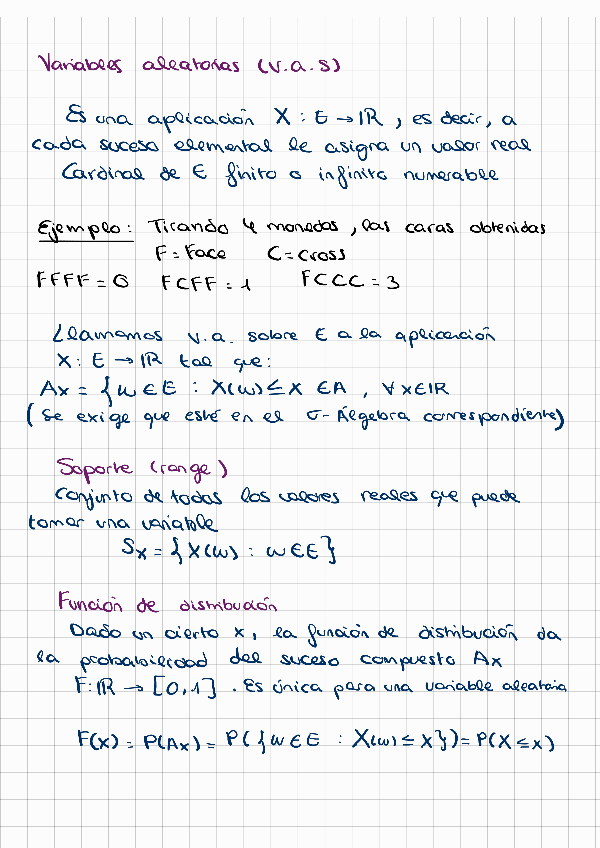 Variables aleatorias (v.a.s)
Es una aplicación X : E → ℝ , es decir, a
cada suceso elemental le asigna un valor real
Cardinal de E finito o infinito numerable
Ejemplo: Tirando 4 monedas, las caras obtenidas
F = Face C = Cross
FFFF = 0 FCFF = 1 FCCC = 3
Llamamos v.a. sobre E a la aplicación
X : E → ℝ tal que:
Ax = { ω ∈ E : X(ω) ≤ x ∈ A , ∀ x ∈ ℝ
(Se exige que esté en el σ-Álgebra correspondiente)
Soporte (range)
Conjunto de todos los valores reales que puede
tomar una variable
Sx = { X(ω) : ω ∈ E }
Función de distribución
Dado un cierto x, la función de distribución da
la probabilidad del suceso compuesto Ax
F: ℝ → [0,1] . Es única para una variable aleatoria
F(x) = P(Ax) = P( { ω ∈ E : X(ω) ≤ x } ) = P(X ≤ x)